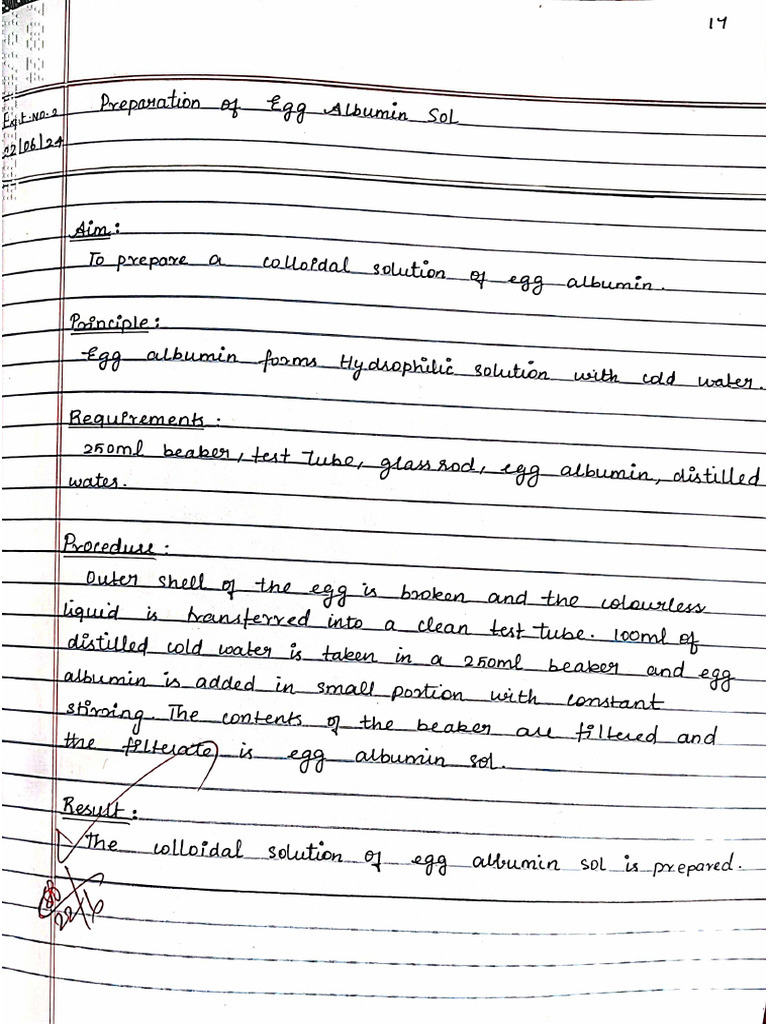 17
Preparation of Egg Albumin Sol
Expt.No.2
22/06/24
Aim:
To prepare a colloidal solution of egg albumin.
Principle:
Egg albumin forms Hydrophilic solution with cold water.
Requirements:
250ml beaker, test tube, glass rod, egg albumin, distilled
water.
Procedure:
Outer shell of the egg is broken and the colourless
liquid is transferred into a clean test tube. 100ml of
distilled cold water is taken in a 250ml beaker and egg
albumin is added in small portion with constant
stirring. The contents of the beaker are filtered and
the filterate is egg albumin sol.
Result:
The colloidal solution of egg albumin sol is prepared.
22/6